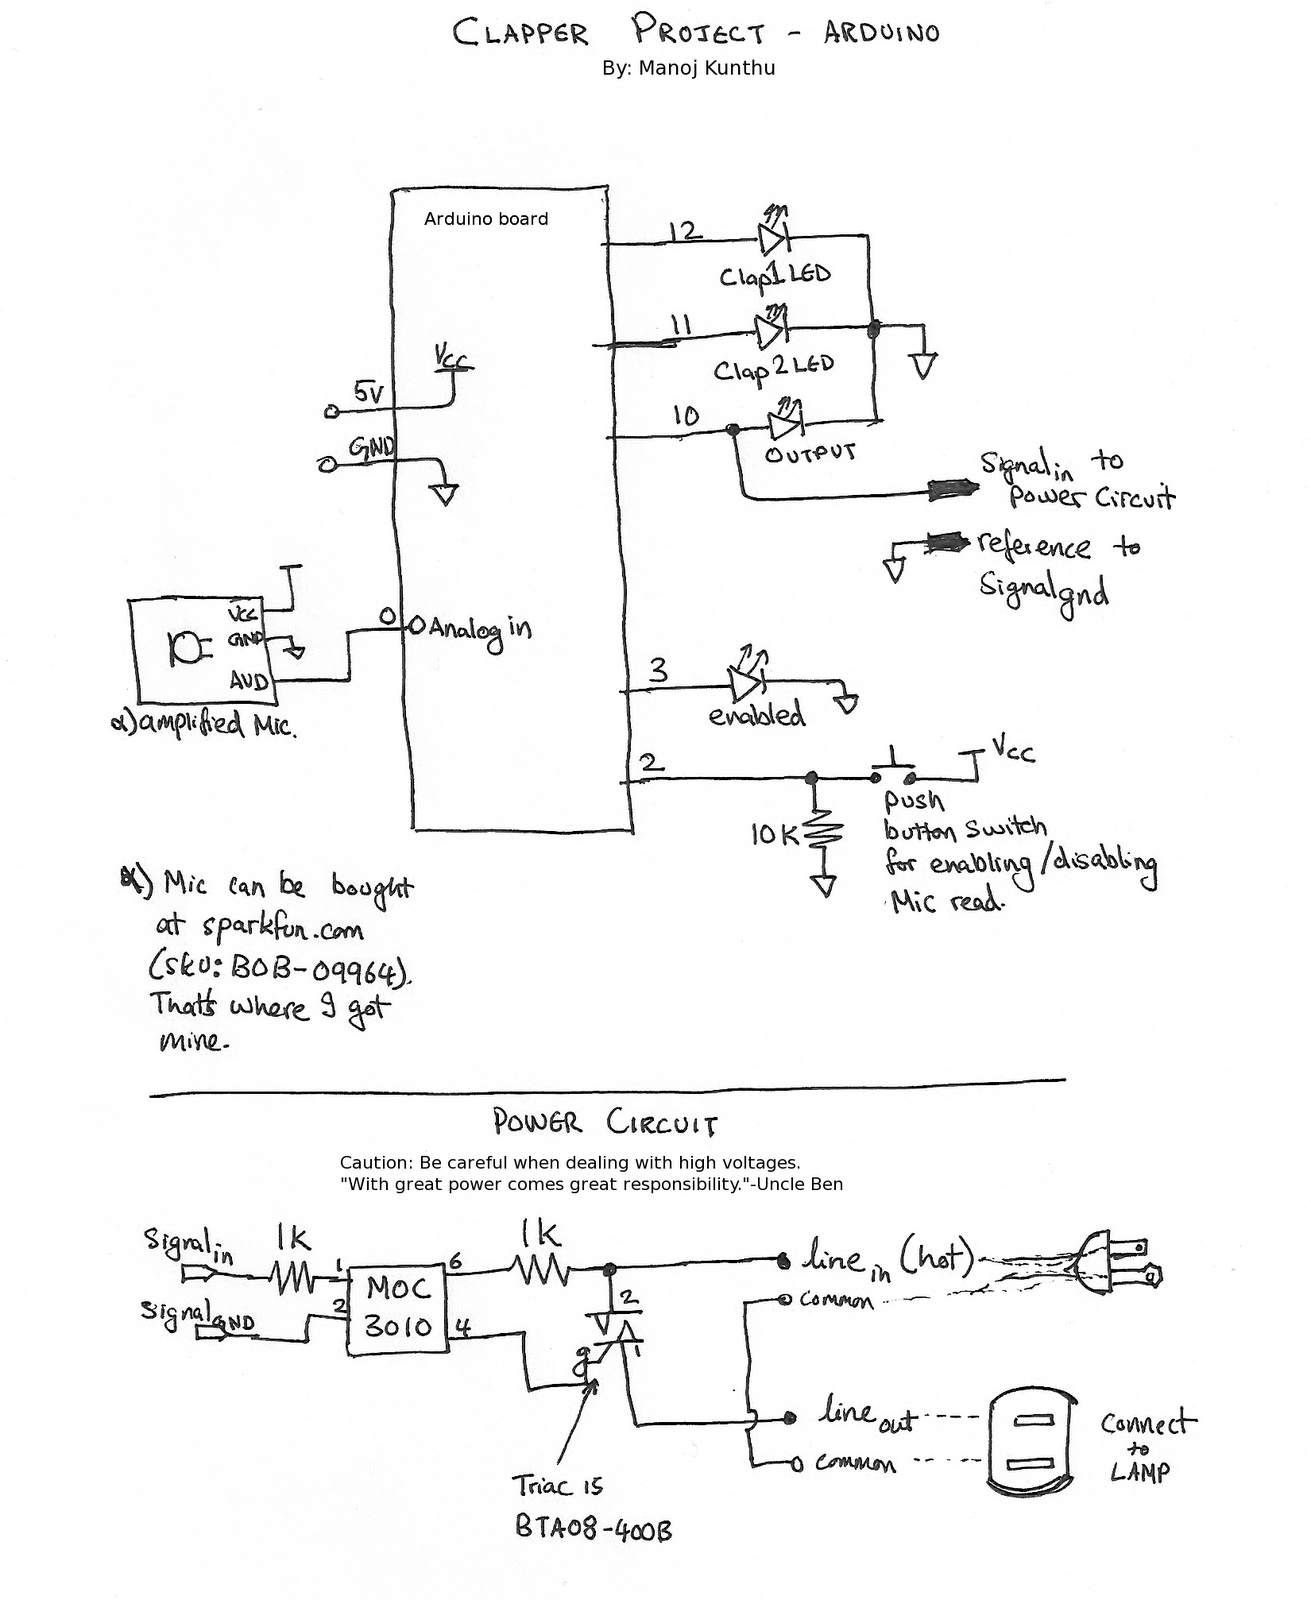 CLAPPER PROJECT - ARDUINO
By: Manoj Kunthu
Arduino board
12
Clap1 LED
11
Clap 2 LED
VCC
5V
10
GND
OUTPUT
Signal in to
Power Circuit
reference to
Signal gnd
VCC
GND
AUD
0
Analog in
α) amplified Mic.
3
enabled
2
VCC
10K
push
button switch
for enabling/disabling
Mic read.
α) Mic can be bought
at sparkfun.com
(sku: BOB-09964).
That's where I got
mine.
POWER CIRCUIT
Caution: Be careful when dealing with high voltages.
"With great power comes great responsibility."-Uncle Ben
Signal in
1K
1
MOC
3010
6
1K
line in (hot)
Signal GND
2
4
2
common
g
1
line out
common
Connect
to
LAMP
Triac is
BTA08-400B